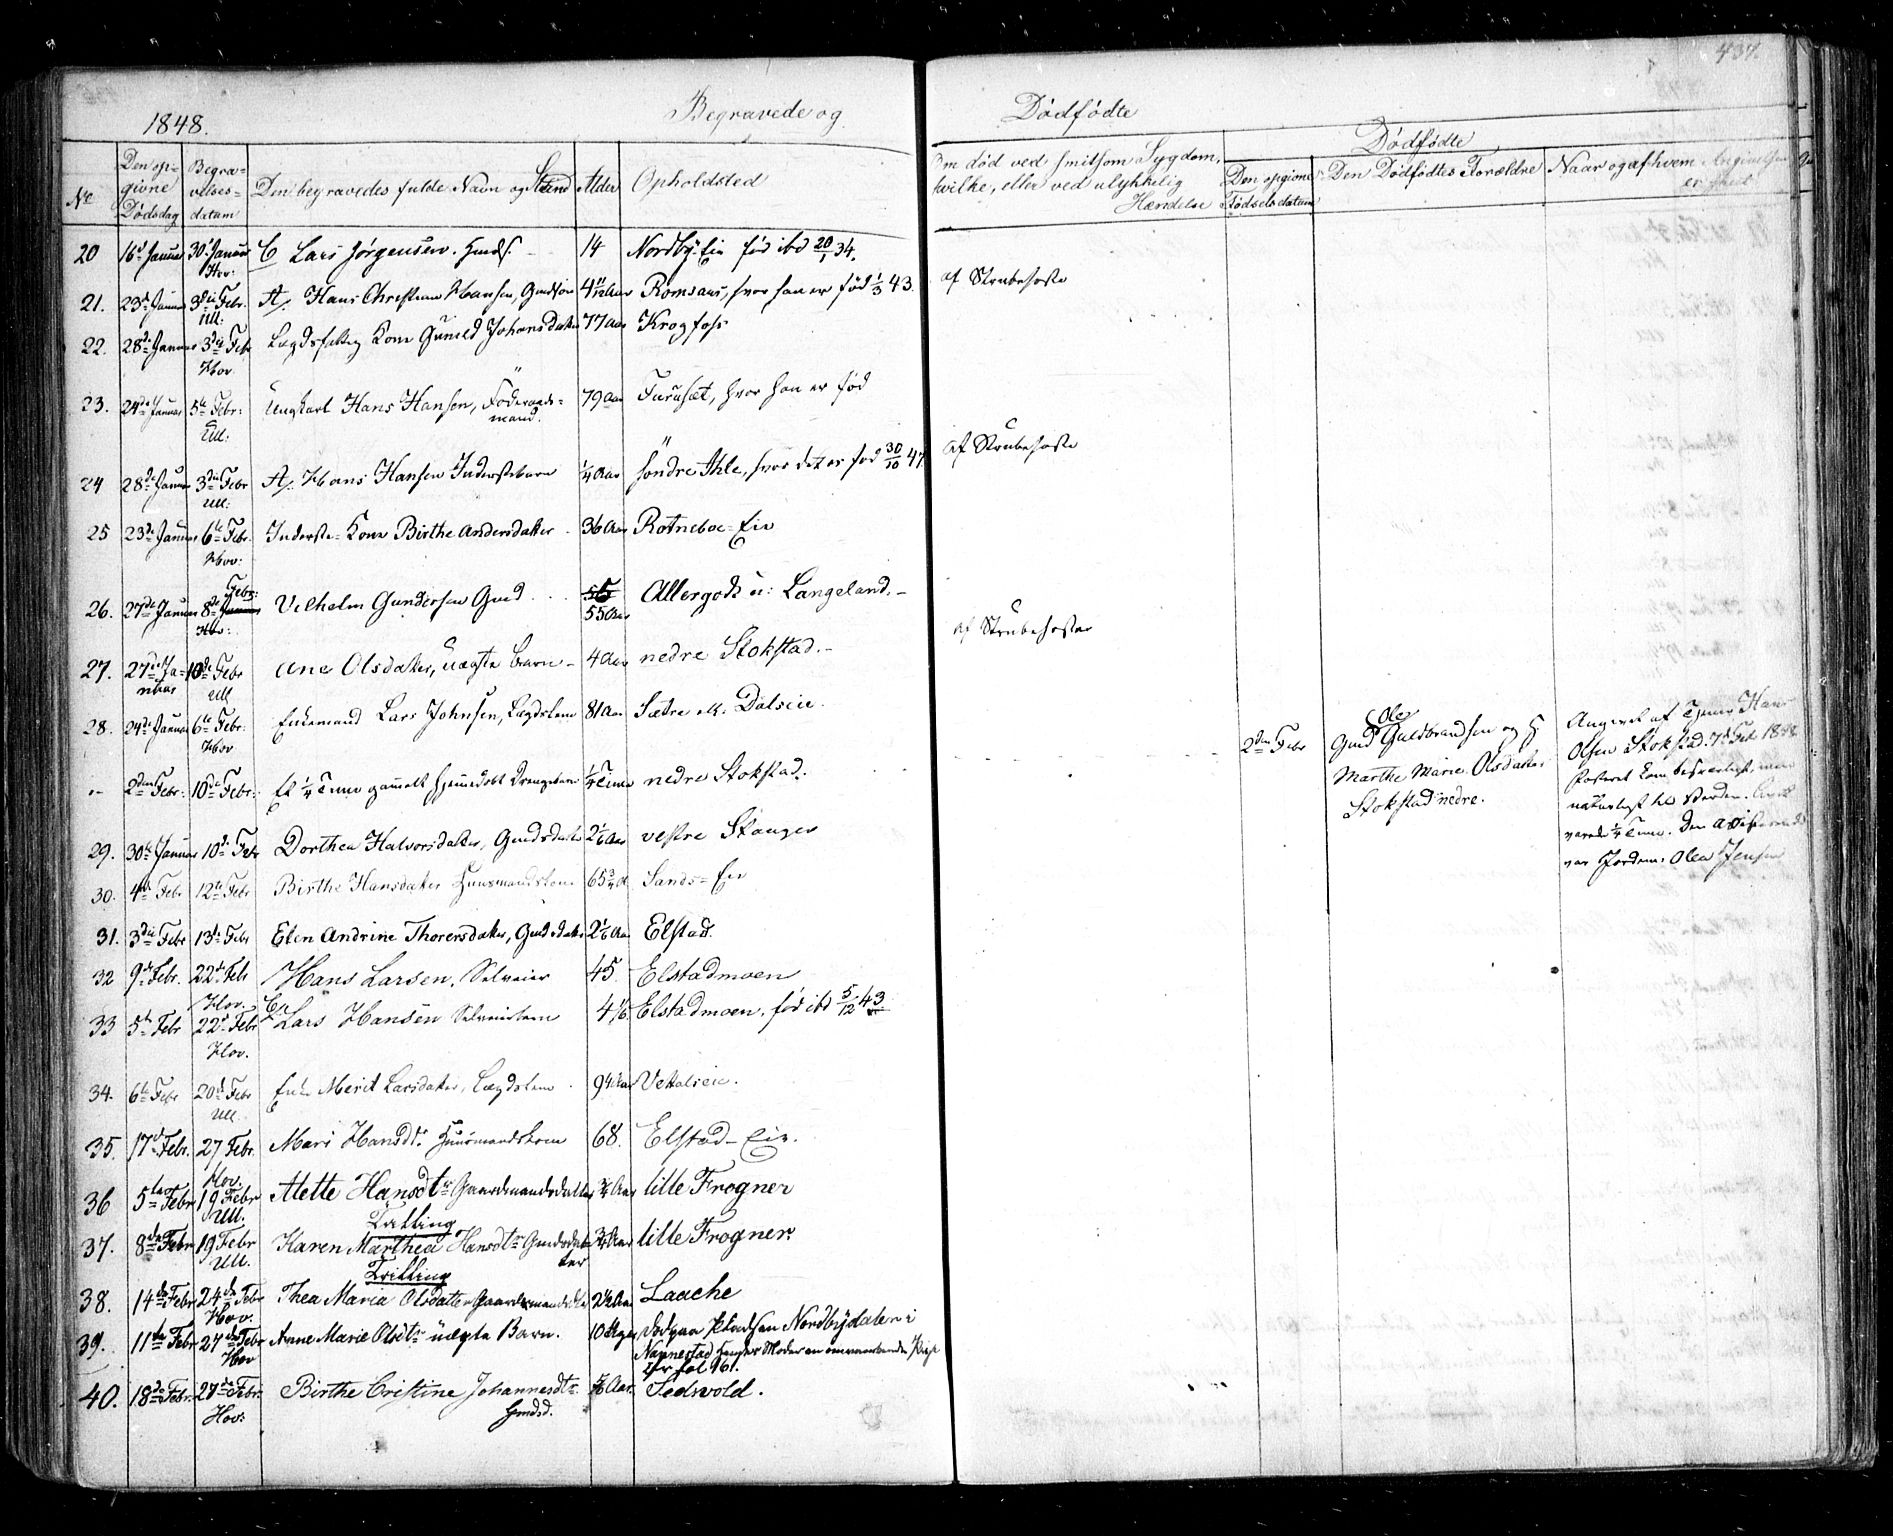 437.
1848. Begravede og Dødfødte
Dødfødte
No Den opgivne Dødsdag Begravelsesdatum Den begravedes fulde Navn og Stand Alder Opholdsted Om død ved smitsom Sygdom, hvilke, eller ved ulykkelig Hændelse Den opgivne Fødselsdatum Den Dødfødtes Forældre Naar og af hvem Angivelsen er skeet
20 16d Januar 30 Januar Hov: C Lars Jørgensen. Gmds. 14 Nordby-Eie fød ibd 20/1 34.
21. 23de Januar 3die Febr. Ull: A/. Hans Christian Hansen, Gmdsøn 4 11/12 Aar Romsaas, hvor han er fød 1/3 43. af Strubehoste
22. 28de Januar 3die Febr Hov. Lægdsfattig Kone Gunild Johansdatter 77 Aar Krogfoss
23. 24de Januar 5te Febr: Ull: Ungkarl Hans Hansen, Föderaadsmand. 79 Aar Furuset, hvor han er fød
24 28de Januar 3die Febr Ull: A/. Hans Hansen Inderstebarn 1/4 Aar søndre Ihle, hvor det er fød 30/10 47. af Strubehoste
25 23de Januar 6te Febr. Hov: Inderste-Kone Birthe Andersdatter 36 Aar Rotneboe-Eie
26. 27de Januar 8de Febr: Hov: Vilhelm Gundersen Gmd 55 Aar Allergodt u: Langeland.
27. 27de Januar 10de Febr Ull Ane Olsdatter, Uægte Barn 4 Aar nedre Stokstad. af Strubehoste
28. 24de Januar 6te Febr. Hov Enkemand Lars Johnsen, Lægdslem 81 Aar Sætre Dalseie
2den Febr: 10de Febr: Et 1/4 Time gammelt hjemmedøbt Drengebarn 1/4 Time nedre Stokstad.
2den Febr Gmd Ole Guldbrandsen og H.
Marthe Marie Olsdatter
Stokstad nedre.
Angivet af Tjener Hans
Olsen Stokstad 7de Feb 1848
Fosteret kom besværligt, men
naturligt til Verden. Livet
varede 1/4 Time. Den assisterende
var Jordem: Olea Jensen
29. 30te Januar 10de Febr Dorthea Halvorsdatter, Gmdsdatter 2 1/6 Aar vestre Stanger
30. 4de Febr 12te Febr Birthe Hansdatter Huusmandskone 65 3/4 A Sands-Eie
31. 3die Febr 13de Febr Elen Andrine Thorersdatter, Gmdsdatter 2 1/6 Aar Elstad.
32 9de Febr. 22de Febr Hov. Hans Larsen. Selveier 45. Elstadmoen
33 5te Febr 22de Febr Hov. C Lars Hansen Selveierbarn 4 1/6. Elstadmoen. fød ibd 5/12 43
34. 6te Febr 20de Febr Ull. Enke Merit Larsdatter, Lægdslem 94 Aar Vetalseie.
35. 17de Febr. 27 Febr. Hov. Mari Hansdtr. Huusmandskone 68. Elstad-Eie.
36 5te Febr 19 Febr Ull. Alette Hansdtr Gaardmandsdatter Tvilling 3/4 Aar lille Frogner
37. 8de Febr 19 Febr Ull. Karen Marthea Hansdtr Gmdsdatter Tvilling 3/4 Aar lille Frogner
38. 14de Febr 24de Febr Hov. Thea Maria Olsdatter Gaardmandsdtr 2 1/2 Aar Laache
39. 11te Febr 27de Febr Hov Anne Marie Olsdtr uægte Barn. 10 Uger Nordbydalen i Nannestad
40. 18de Febr. 27de Febr. Hov: Birthe Cristine Johannesdtr Gmdsd. Aar. Sedsvold.